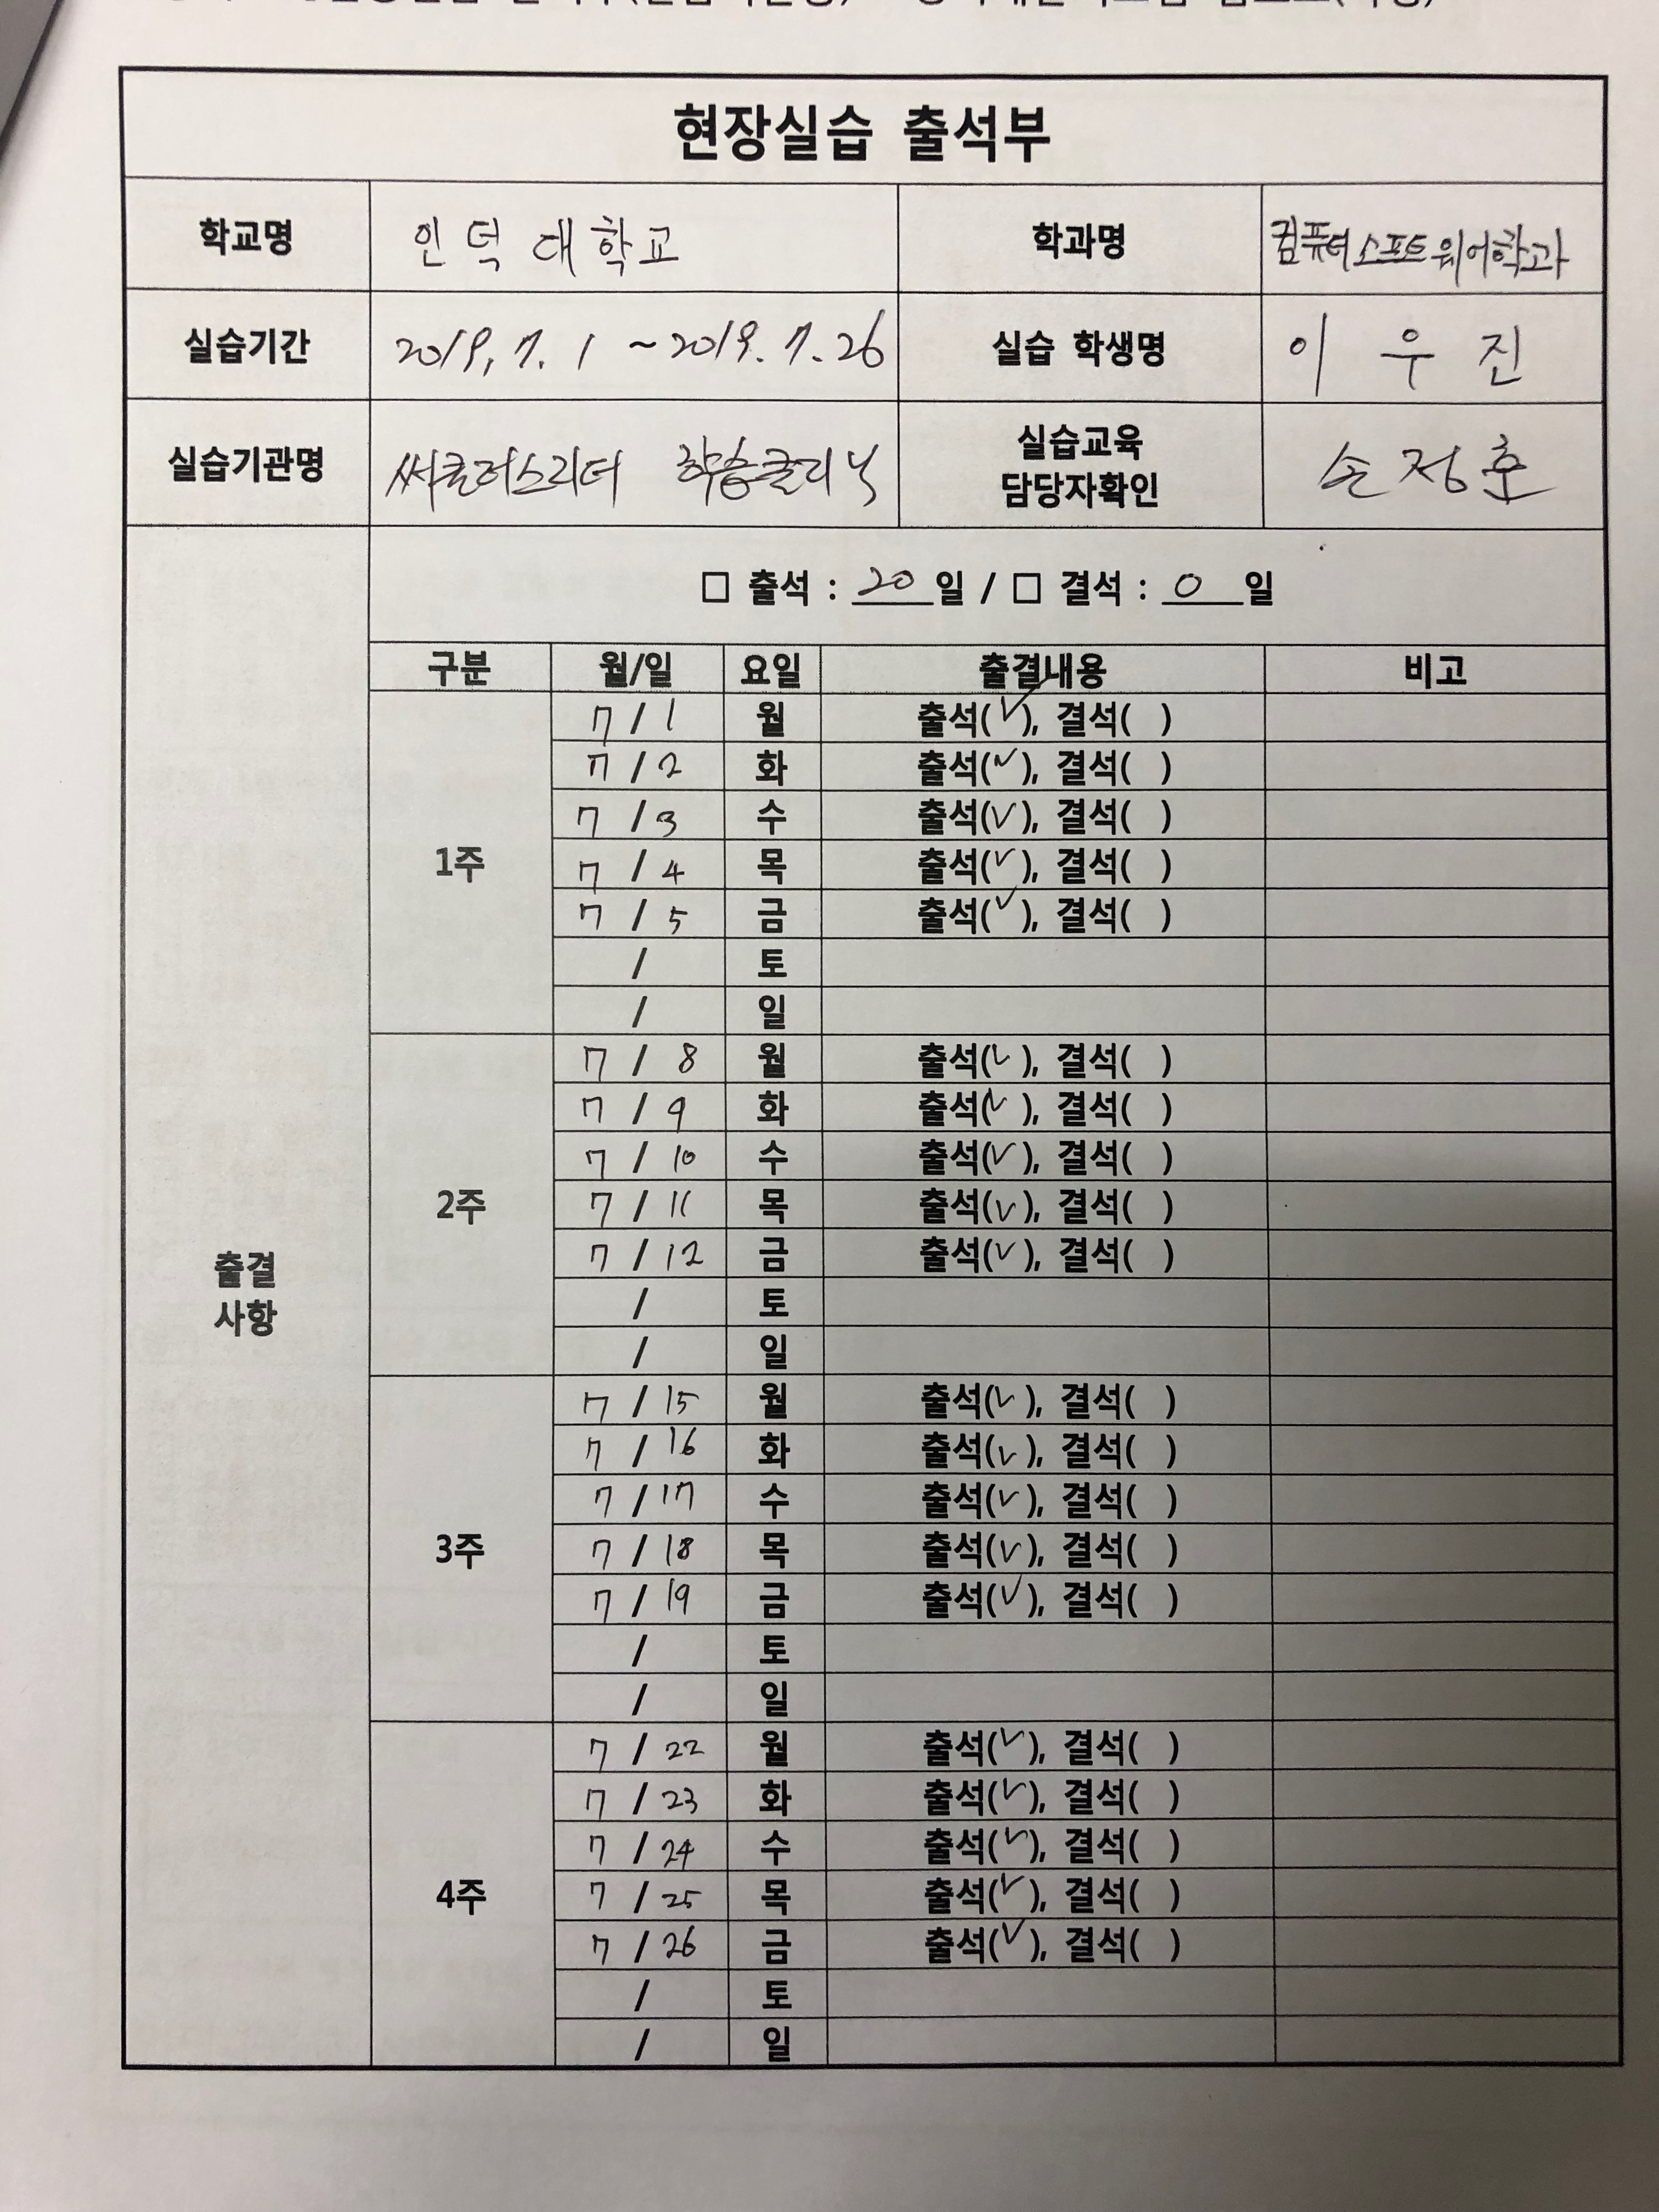 현장실습 출석부
학교명 인덕대학교 학과명 컴퓨터소프트웨어학과
실습기간 2019. 7. 1 ~ 2019. 7. 26 실습 학생명 이우진
실습기관명 써클러스리더 학습클리닉 실습교육 담당자확인 손정호
□ 출석 : 20 일 / □ 결석 : 0 일
구분 월/일 요일 출결내용 비고
출결 사항
1주
7 / 1 월 출석(✓), 결석( )
7 / 2 화 출석(✓), 결석( )
7 / 3 수 출석(✓), 결석( )
7 / 4 목 출석(✓), 결석( )
7 / 5 금 출석(✓), 결석( )
/ 토
/ 일
2주
7 / 8 월 출석(✓), 결석( )
7 / 9 화 출석(✓), 결석( )
7 / 10 수 출석(✓), 결석( )
7 / 11 목 출석(✓), 결석( )
7 / 12 금 출석(✓), 결석( )
/ 토
/ 일
3주
7 / 15 월 출석(✓), 결석( )
7 / 16 화 출석(✓), 결석( )
7 / 17 수 출석(✓), 결석( )
7 / 18 목 출석(✓), 결석( )
7 / 19 금 출석(✓), 결석( )
/ 토
/ 일
4주
7 / 22 월 출석(✓), 결석( )
7 / 23 화 출석(✓), 결석( )
7 / 24 수 출석(✓), 결석( )
7 / 25 목 출석(✓), 결석( )
7 / 26 금 출석(✓), 결석( )
/ 토
/ 일